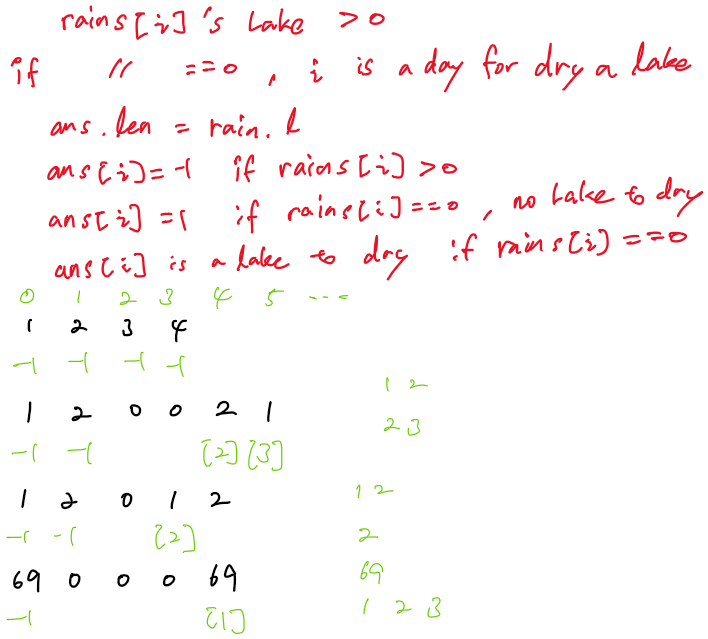 rains[i]'s Lake > 0
if 〃 == 0 , i is a day for dry a lake
ans.len = rain.l
ans[i]= -1 if rains[i] > 0
ans[i] = 1 if rains[i] == 0 , no Lake to dry
ans[i] is a lake to dry if rains[i] == 0
0 1 2 3 4 5 ----
1 2 3 4
-1 -1 -1 -1
1 2
1 2 0 0 2 1
2 3
-1 -1 [2] [3]
1 2 0 1 2
1 2
-1 -1 [2]
2
69 0 0 0 69
69
-1 [1]
1 2 3